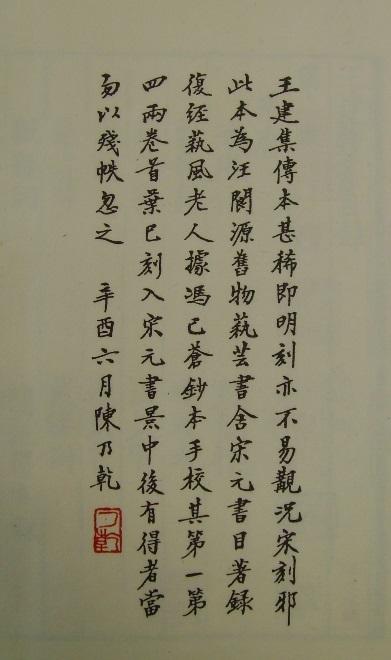 王建集傳本甚稀即明刻亦不易覯況宋刻邪
此本為汪閬源舊物藝芸書舍宋元書目著録
復經藝風老人據馮己蒼鈔本手校其第一第
四兩卷首葉已刻入宋元書景中後有得者當
勿以殘帙忽之　辛酉六月陳乃乾
乃乾